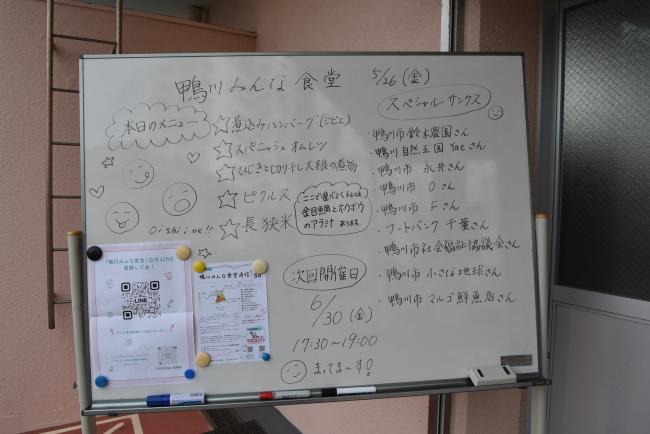 鴨川みんな食堂
5/26(金)
本日のメニュー
☆煮込みハンバーグ(ジビエ)
☆スパニッシュオムレツ
☆ひじきと切り干し大根の煮物
☆ピクルス
☆長狭米
Oishiine!!
金目鯛とホウボウ
のアラ汁 あります
スペシャル サンクス
・鴨川市 鈴木農園さん
・鴨川 自然王国 Yaeさん
・鴨川市 永井さん
・鴨川市 Oさん
・鴨川市 Fさん
・フードバンク 千葉さん
・鴨川市社会福祉協議会さん
・鴨川市 小さな地球さん
・鴨川市 マルゴ鮮魚店さん
次回開催日
6/30(金)
17:30~19:00
まってま〜す!
「鴨川みんな食堂」公式LINE
登録してね!
LINE
鴨川みんな食堂通信 5月